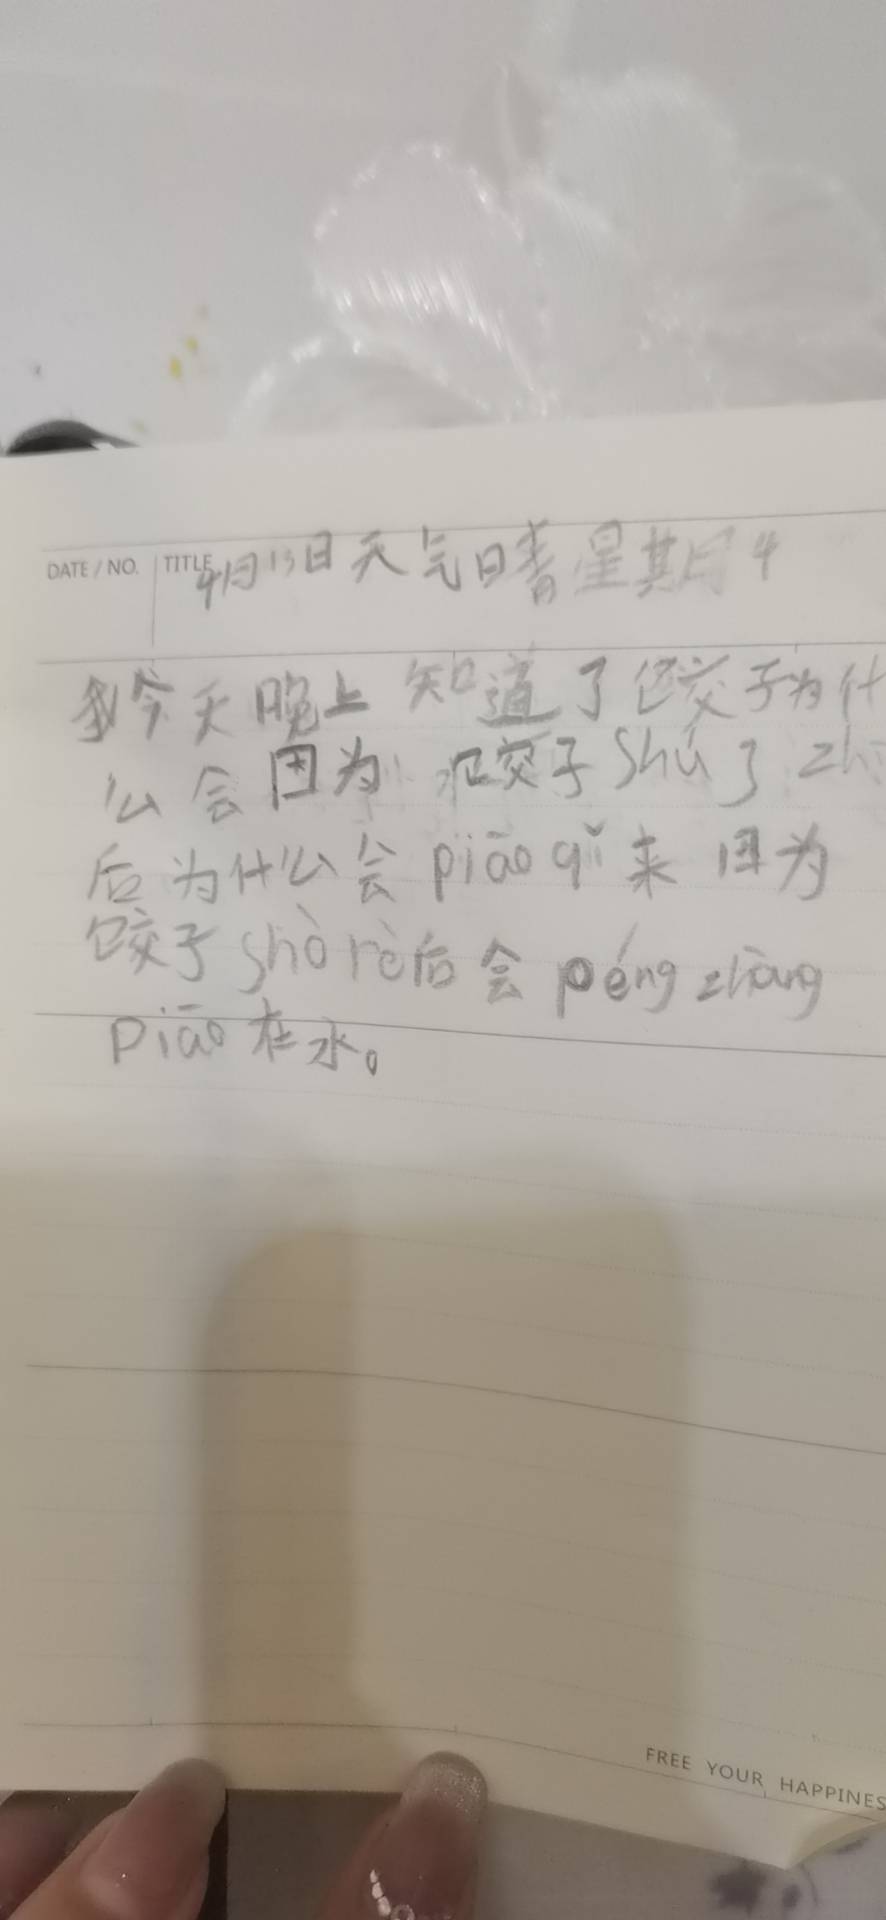 DATE / NO. TITLE
4月13日天气晴星期4
我今天晚上知道了饺子为什
么会因为饺子shú了zh
后为什么会piāo qǐ来因为
饺子shòrè后会péng zhàng
piāo在水。
FREE YOUR HAPPINES